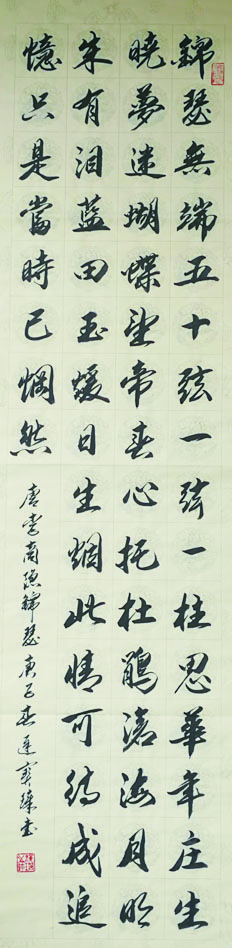 錦瑟無端五十弦一弦一柱思華年庄生
曉夢迷蝴蝶望帝春心托杜鵑滄海月明
朱有泪藍田玉煖日生烟此情可待成追
憶只是當時已惘然
唐李商隱錦瑟庚子春